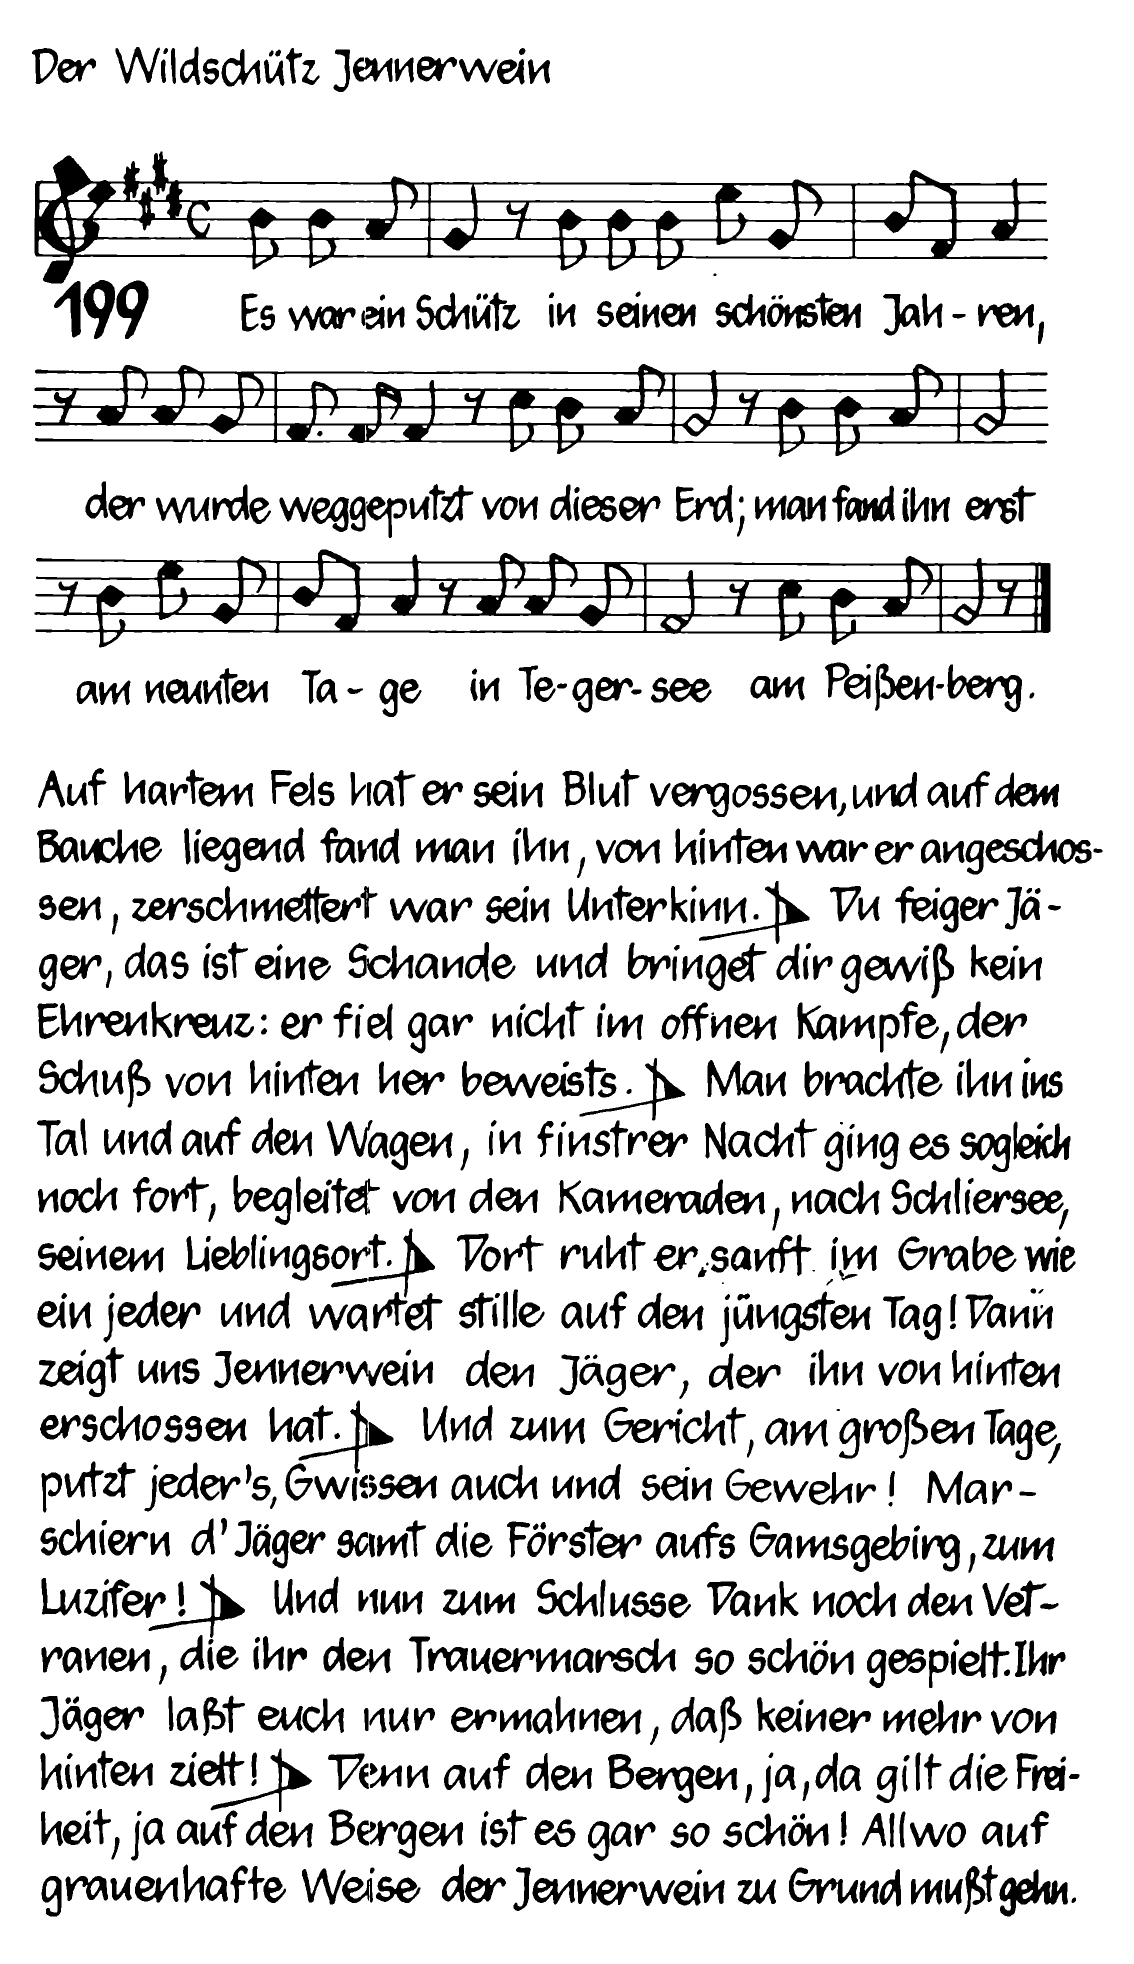 Der Wildschütz Jennerwein
199
Es war ein Schütz in seinen schönsten Jah-ren,
der wurde weggeputzt von dieser Erd; man fand ihn erst
am neunten Ta-ge in Te-ger-see am Peißen-berg.
Auf hartem Fels hat er sein Blut vergossen, und auf dem
Bauche liegend fand man ihn, von hinten war er angeschos-
sen, zerschmettert war sein Unterkinn. Du feiger Jä-
ger, das ist eine Schande und bringet dir gewiß kein
Ehrenkreuz: er fiel gar nicht im offnen Kampfe, der
Schuß von hinten her beweists. Man brachte ihn ins
Tal und auf den Wagen, in finstrer Nacht ging es sogleich
noch fort, begleitet von den Kameraden, nach Schliersee,
seinem Lieblingsort. Dort ruht er sanft im Grabe wie
ein jeder und wartet stille auf den jüngsten Tag! Dann
zeigt uns Jennerwein den Jäger, der ihn von hinten
erschossen hat. Und zum Gericht, am großen Tage,
putzt jeder's, Gwissen auch und sein Gewehr! Mar-
schiern d'Jäger samt die Förster aufs Gamsgebirg, zum
Luzifer! Und nun zum Schlusse Dank noch den Vet-
ranen, die ihr den Trauermarsch so schön gespielt. Ihr
Jäger laßt euch nur ermahnen, daß keiner mehr von
hinten zielt! Denn auf den Bergen, ja, da gilt die Frei-
heit, ja auf den Bergen ist es gar so schön! Allwo auf
grauenhafte Weise der Jennerwein zu Grund mußt gehn.